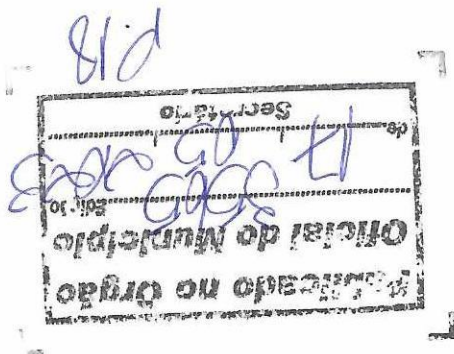 Publicado no Orgão
Oficial do Município
Edição
de 17 / 05 / 2023
Secretário
P.18